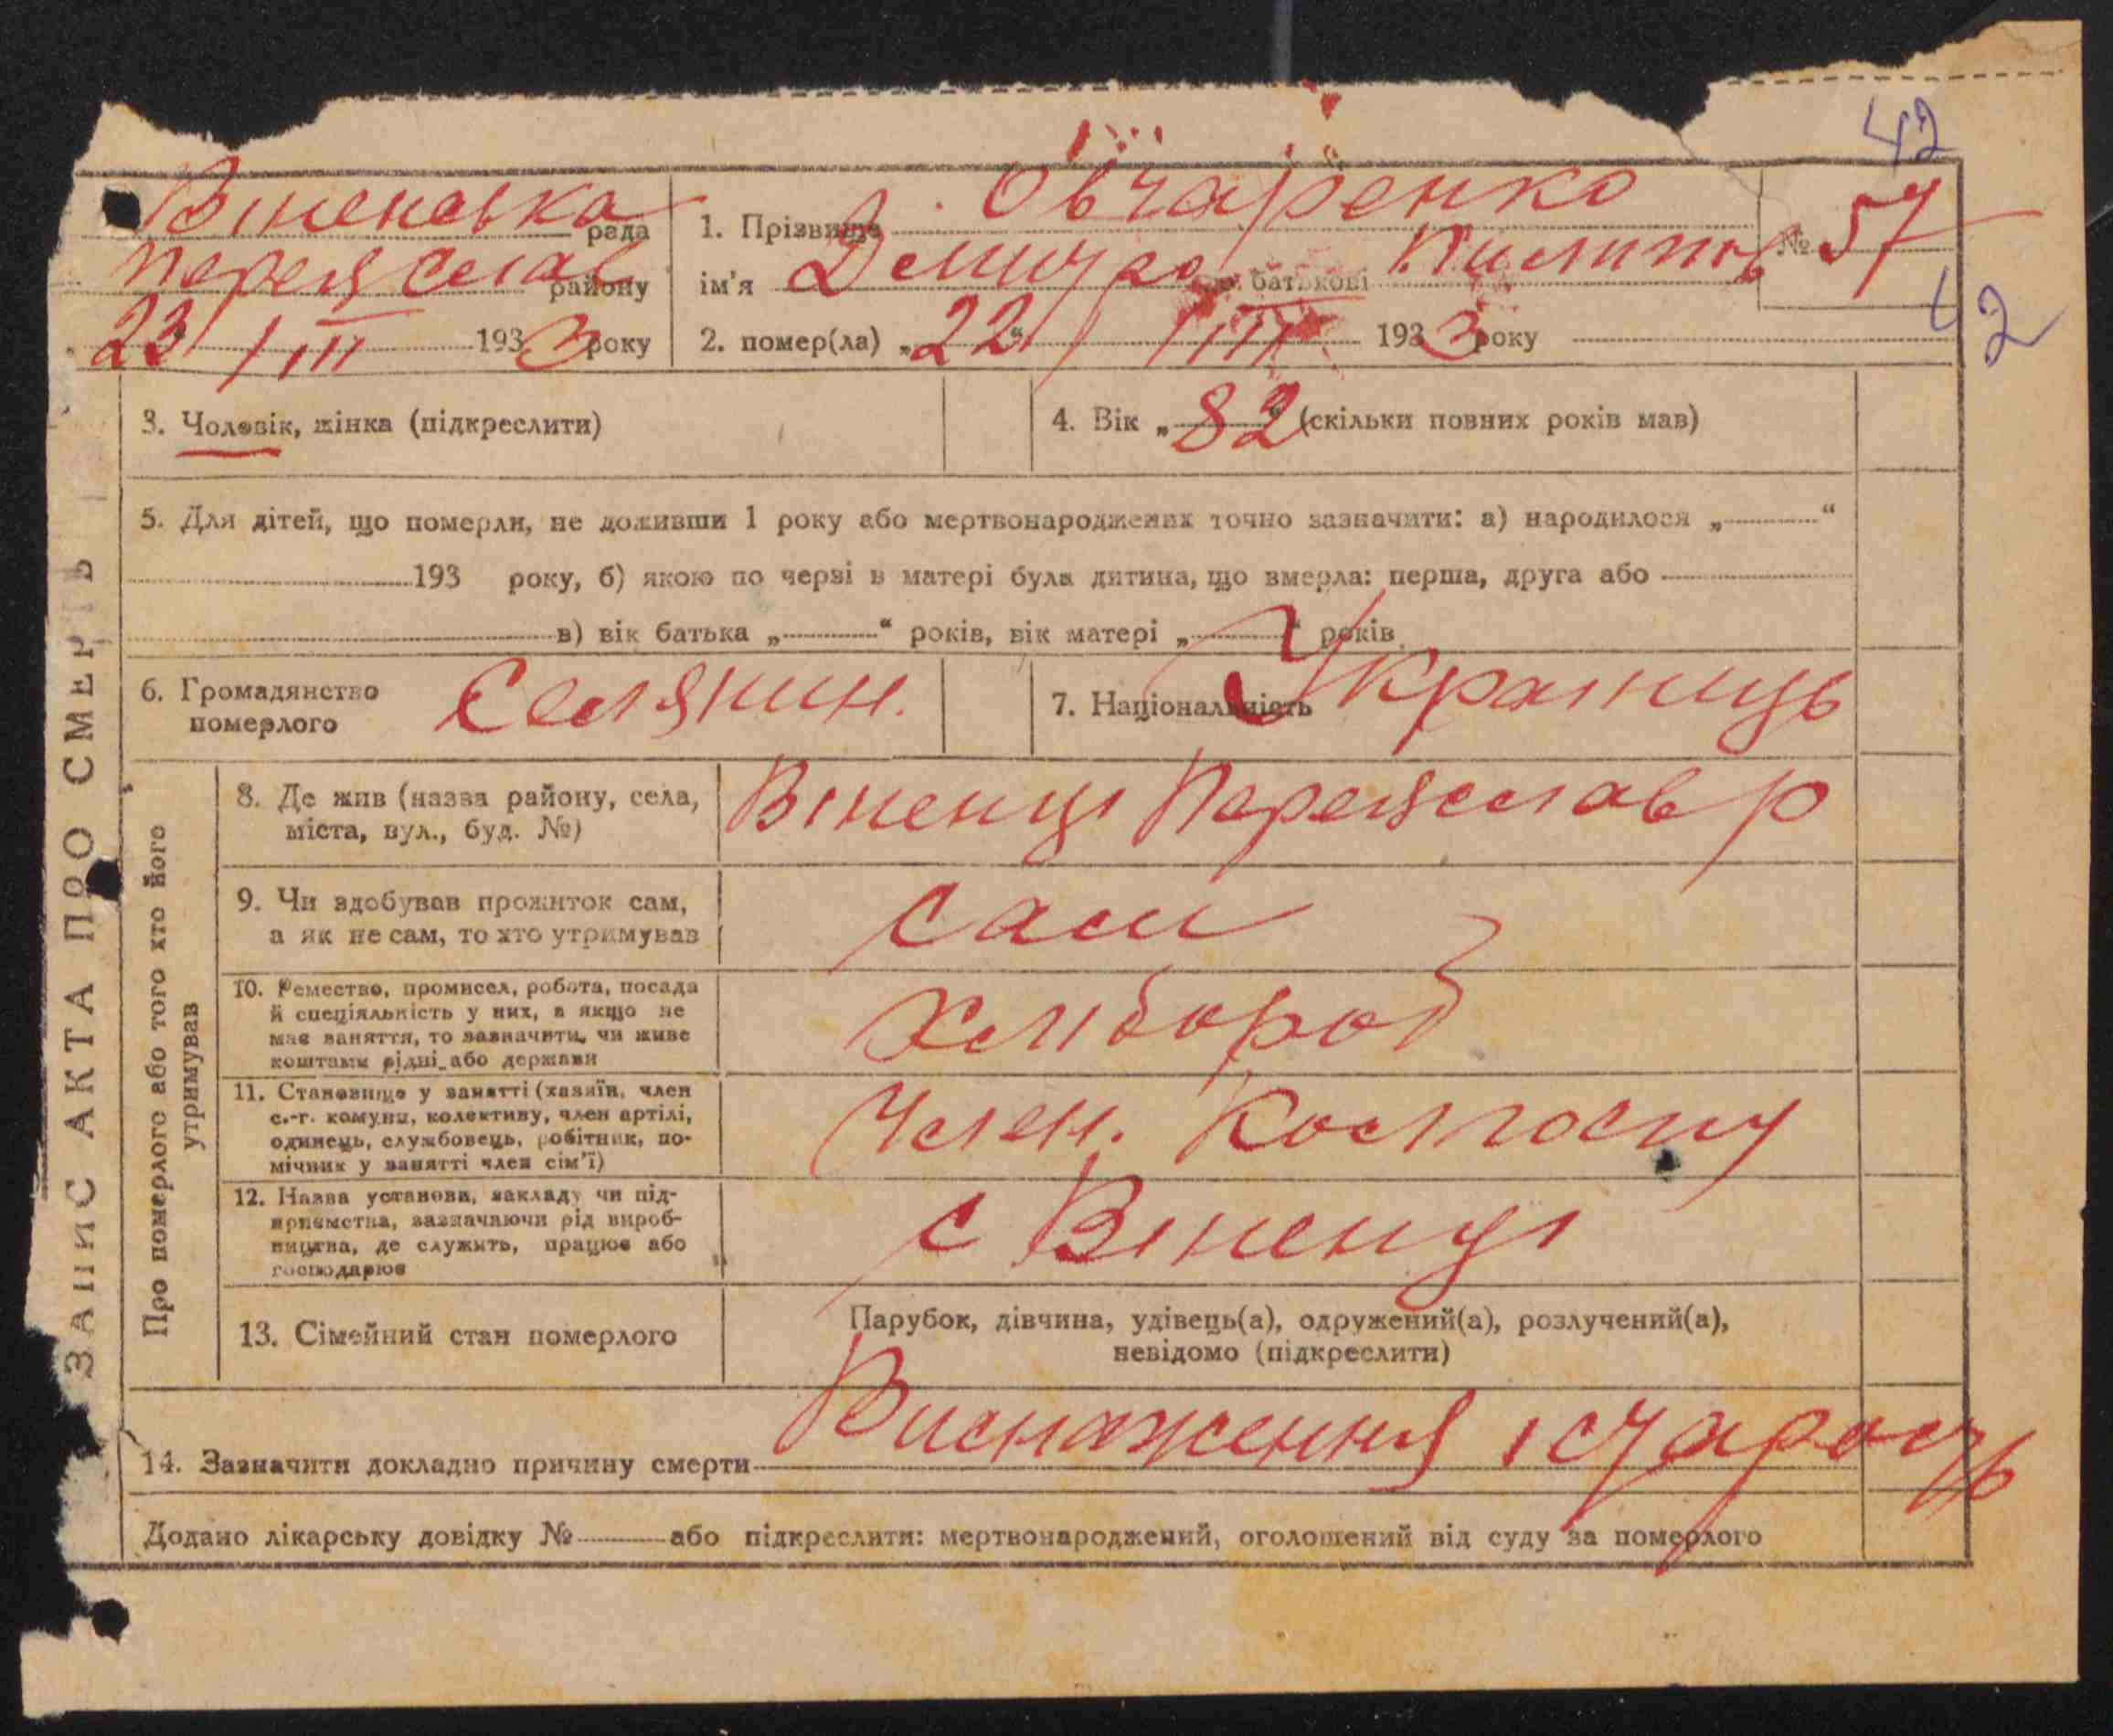 42
Віненська рада
Переяслав району
23/III 1933 року
1. Прізвище Овчаренко
ім'я Дмитро по батькові Пилипів
№ 57
2. помер(ла) „22“/III 1933 року
42
3. Чоловік, жінка (підкреслити)
4. Вік „82“ (скільки повних років мав)
5. Для дітей, що померли, не доживши 1 року або мертвонароджених точно зазначити: а) народилося „ “
193 року, б) якою по черзі в матері була дитина, що вмерла: перша, друга або
в) вік батька „ “ років, вік матері „ “ років
6. Громадянство
померлого
Селянин.
7. Національність Українець
ЗАПИС АКТА ПРО СМЕРТЬ
Про померлого або того хто його
утримував
8. Де жив (назва району, села,
міста, вул., буд. №)
Віненці Переяслав р
9. Чи здобував прожиток сам,
а як не сам, то хто утримував
Сам
10. Ремество, промисел, робота, посада
й спеціяльність у них, а якщо не
має заняття, то зазначити, чи живе
коштами рідні або держави
Хлібороб
11. Становище у занятті (хазяїн, член
с.-г. комуни, колективу, член артілі,
одинець, службовець, робітник, по-
мічник у занятті член сім'ї)
Член. Колгоспу
12. Назва установи, закладу чи під-
приємства, зазначаючи рід вироб-
ництва, де служить, працює або
господарює
с Віненці
13. Сімейний стан померлого
Парубок, дівчина, удівець(а), одружений(а), розлучений(а),
невідомо (підкреслити)
14. Зазначити докладно причину смерти Виснаження і старость
Додано лікарську довідку № або підкреслити: мертвонароджений, оголошений від суду за померлого